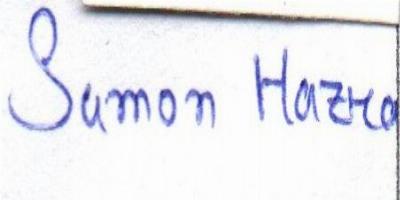 Sumon Hazra